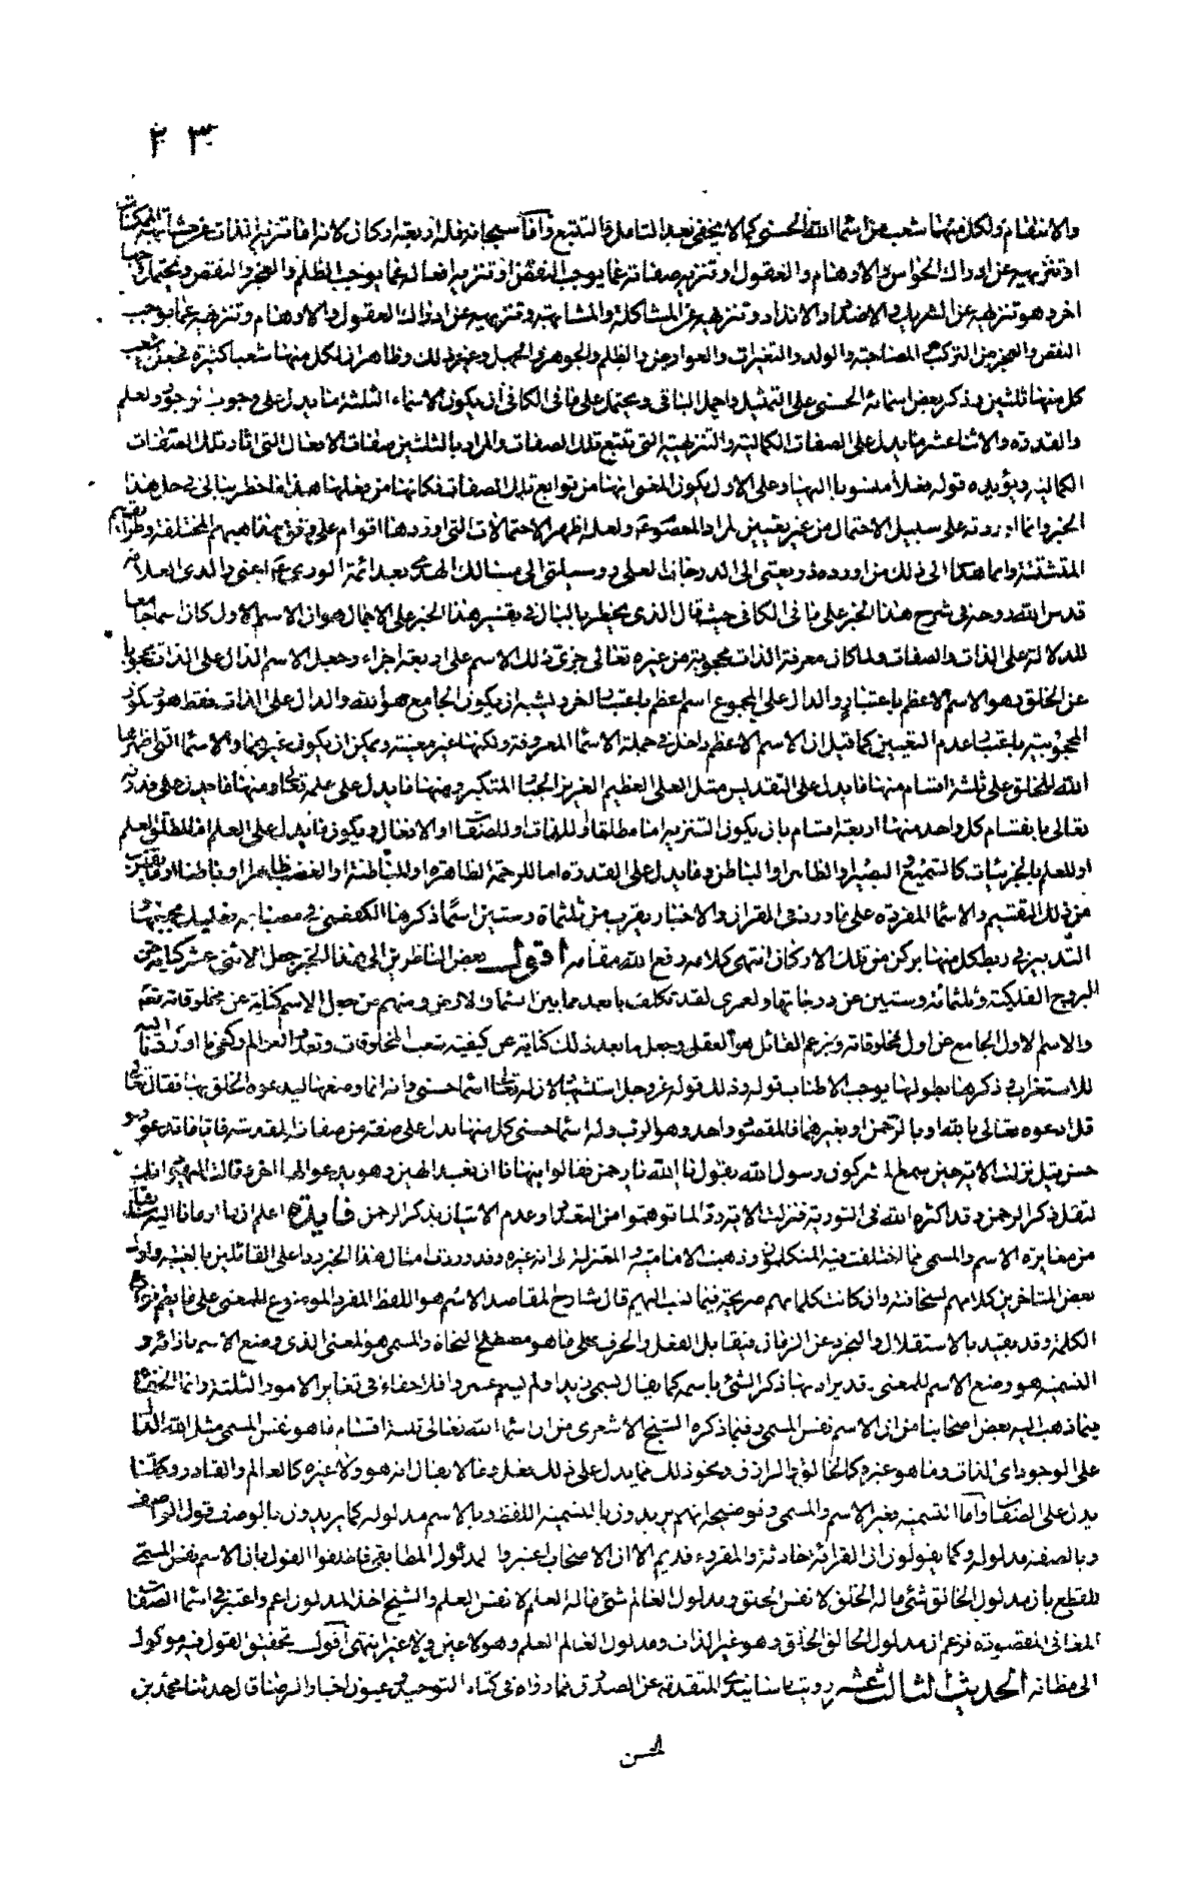 ٢٣
والانتقام ولكل منهما شعب من اسماء الله الحسنى كما لا يخفى بعد التامل والتتبع واما سبحانه فله اربعة اركان لانه اما تنزيه الذات عن مشابهة الممكنات
او تنزيهه عن ادراك الحواس والاوهام والعقول او تنزيه صفاته عما يوجب النقص او تنزيه افعاله عما يوجب الظلم والعجز والنقص ويحتمل وجها
اخر وهو تنزيهه عن الشريك والاضداد والانداد وتنزيهه عن المشاكلة والمشابهة وتنزيهه عن ادراك العقول والاوهام وتنزيهه عما يوجب
النقص والعجز من التركب والصاحبة والولد والتغيرات والعوارض والظلم والجور والجهل وغير ذلك وظاهر ان لكل منها شعبا كثيرة فجعل شعب
كل منها ثلثين وذكر بعض اسمائه الحسنى على التمثيل واجمل الباقى ويحتمل على ما فى الكافى ان يكون الاسماء الثلثة ما يدل على وجوب الوجود والعلم
والقدرة والاثنا عشر ما يدل على الصفات الكمالية والتنزيهية التى تتبع تلك الصفات والمراد بالثلثين صفات الافعال التى اثار تلك الصفات
الكمالية ويؤيده قوله فعلا منسوبا اليها وعلى الاول يكون المعنى انها من توابع تلك الصفات فكانها من فعلها هذا ما خطر ببالى فى حل هذا
الخبر وانما اوردته على سبيل الاحتمال من غير تعيين لمراد المعصوم ع ولعله اظهر الاحتمالات التى اوردها اقوام على وفق مذاهبهم المختلفة وطرائقهم
المتشتتة وانما هدانا الى ذلك ما اورده ذريعتى الى الدرجات العلى ووسيلتى الى مسالك الهدى بعد ائمة الورى ع اعنى والدى العلامة
قدس الله روحه فى شرح هذا الخبر على ما فى الكافى حيث قال الذى يخطر بالبال فى تفسير هذا الخبر على الاجمال هو ان الاسم الاول كان اسما جامعا
للدلالة على الذات والصفات ولما كان معرفة الذات محجوبة عن غيره تعالى جزى ذلك الاسم على اربعة اجزاء وجعل الاسم الدال على الذات محجوبا
عن الخلق وهو الاسم الاعظم باعتبار والدال على المجموع اسم اعظم باعتبار اخر ويشبه ان يكون الجامع هو الله والدال على الذات فقط هو وتكون
المحجوبية باعتبار عدم التعيين كما قيل ان الاسم الاعظم داخل فى جملة الاسماء المعروفة ولكنها غير معينة ويمكن ان يكون غيرهما والاسماء التى اظهرها
الله للخلق على ثلثة اقسام منها ما يدل على التقديس مثل العلى العظيم العزيز الجبار المتكبر ومنها ما يدل على علمه تعالى ومنها ما يدل على قدرته
تعالى وانقسام كل واحد منها الى اربعة اقسام بان يكون التنزيه اما مطلقا او للذات او للصفات او الافعال ويكون ما يدل على العلم اما لمطلق العلم
او للعلم بالجزئيات كالسميع والبصير او الظاهر او الباطن وما يدل على القدرة اما للرحمة الظاهرة او الباطنة او الغضب ظاهرا او باطنا او ما يقرب
من ذلك التقسيم والاسماء المفردة على ما ورد فى القران والاخبار يقرب من ثلثمائة وستين اسما ذكرها الكفعمى فى مصباحه فعليك بجمعها
والتدبر فى ربط كل منها بركن من تلك الاركان انتهى كلامه رفع الله مقامه اقول بعض الناظرين الى هذا الخبر جعل الاثنى عشر كناية عن
البروج الفلكية وثلثمائة وستين عن درجاتها ولعمرى لقد تكلف بابعد مما بين السماء والارض ومنهم من جعل الاسم كناية عن مخلوقاته تعالى
والاسم الاول الجامع عن اول مخلوقاته وبزعم القائل هو العقل وجعل ما بعد ذلك كناية عن كيفية تشعب المخلوقات وتعدد العوالم وكفى ما اوردنا
للاستغراب وذكرها بطولها يوجب الاطناب قوله وذلك قوله عز وجل استشهاد لان له تعالى اسماء حسنى وانه انما وضعها ليدعوه الخلق بها فقال تعالى
قل ادعوه تعالى بالله او بالرحمن او بغيرهما فالمقصود واحد وهو الرب وله اسماء حسنى كل منها يدل على صفة من صفاته المقدسة فايا ما تدعو فهو
حسن قيل نزلت الاية حين سمع المشركون رسول الله يقول يا الله يا رحمن فقالوا ينهانا ان نعبد الهين وهو يدعو الها اخر وقالت اليهود انك
لتقل ذكر الرحمن وقد اكثره الله فى التورية فنزلت الاية ردا لما توهموا من التعدد او عدم الاتيان بذكر الرحمن فايدة اعلم ان ما اومانا اليه سابقا
من مغايرة الاسم والمسمى مما اختلفت فيه المتكلمون وذهبت الامامية والمعتزلة الى انه غيره وقد وردت امثال هذا الخبر ردا على القائلين بالعينية واول
بعض المتاخرين كلامهم لسخافته وان كانت كلماتهم صريحة فيما نسب اليهم قال شارح المقاصد الاسم هو اللفظ المفرد الموضوع للمعنى على ما يعم انواع
الكلمة وقد يقيد بالاستقلال والتجرد عن الزمان فيقابل الفعل والحرف على ما هو مصطلح النحاة والمسمى هو المعنى الذى وضع الاسم بازائه و
التسمية هو وضع الاسم للمعنى وقد يراد بها ذكر الشئ باسمه كما يقال يسمى زيدا ولم يسم عمروا فلا خفاء فى تغاير الامور الثلثة وانما الخفاء
فيما ذهب اليه بعض اصحابنا من ان الاسم نفس المسمى وفيما ذكره الشيخ الاشعرى من ان اسماء الله تعالى ثلثة اقسام ما هو نفس المسمى مثل الله الدال
على الوجود اى الذات وما هو غيره كالخالق والرازق ونحو ذلك مما يدل على فعل وما لا يقال انه هو ولا غيره كالعالم والقادر وكل ما
يدل على الصفات واما التسمية فغير الاسم والمسمى وتوضيحه انهم يريدون بالتسمية اللفظ وبالاسم مدلوله كما يريدون بالوصف قول الواصف
وبالصفة مدلوله وكما يقولون ان القرائة حادثة والمقروء قديم الا ان الاصحاب اعتبروا المدلول المطابقى فاطلقوا القول بان الاسم نفس المسمى
للقطع بان مدلول الخالق شئ ما له الخلق لا نفس الخلق ومدلول العالم شئ ما له العلم لا نفس العلم والشيخ اخذ المدلول اعم واعتبر فى اسماء الصفات
المعانى المقصودة فزعم ان مدلول الخالق الخلق وهو غير الذات ومدلول العالم العلم وهو لا عين ولا غير انتهى اقول تحقيق القول فيه موكول
الى مظانه الحديث الثالث عشر رويته باسانيدى المتقدمة عن الصدوق مما رواه فى كتاب التوحيد وعيون اخبار الرضا قال حدثنا محمد بن
الحسن